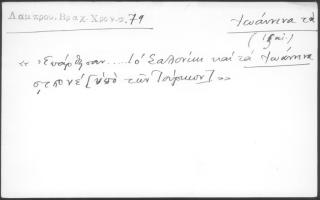 Λαμπρου. Βραχ. Χρον. σ. 79
Ἰωάννινα τὰ
« Ἐπάρθησαν.....ἡ Σαλονίκη καὶ τὰ Ἰωάννινα
[ὑπὸ τῶν Τούρκων] »